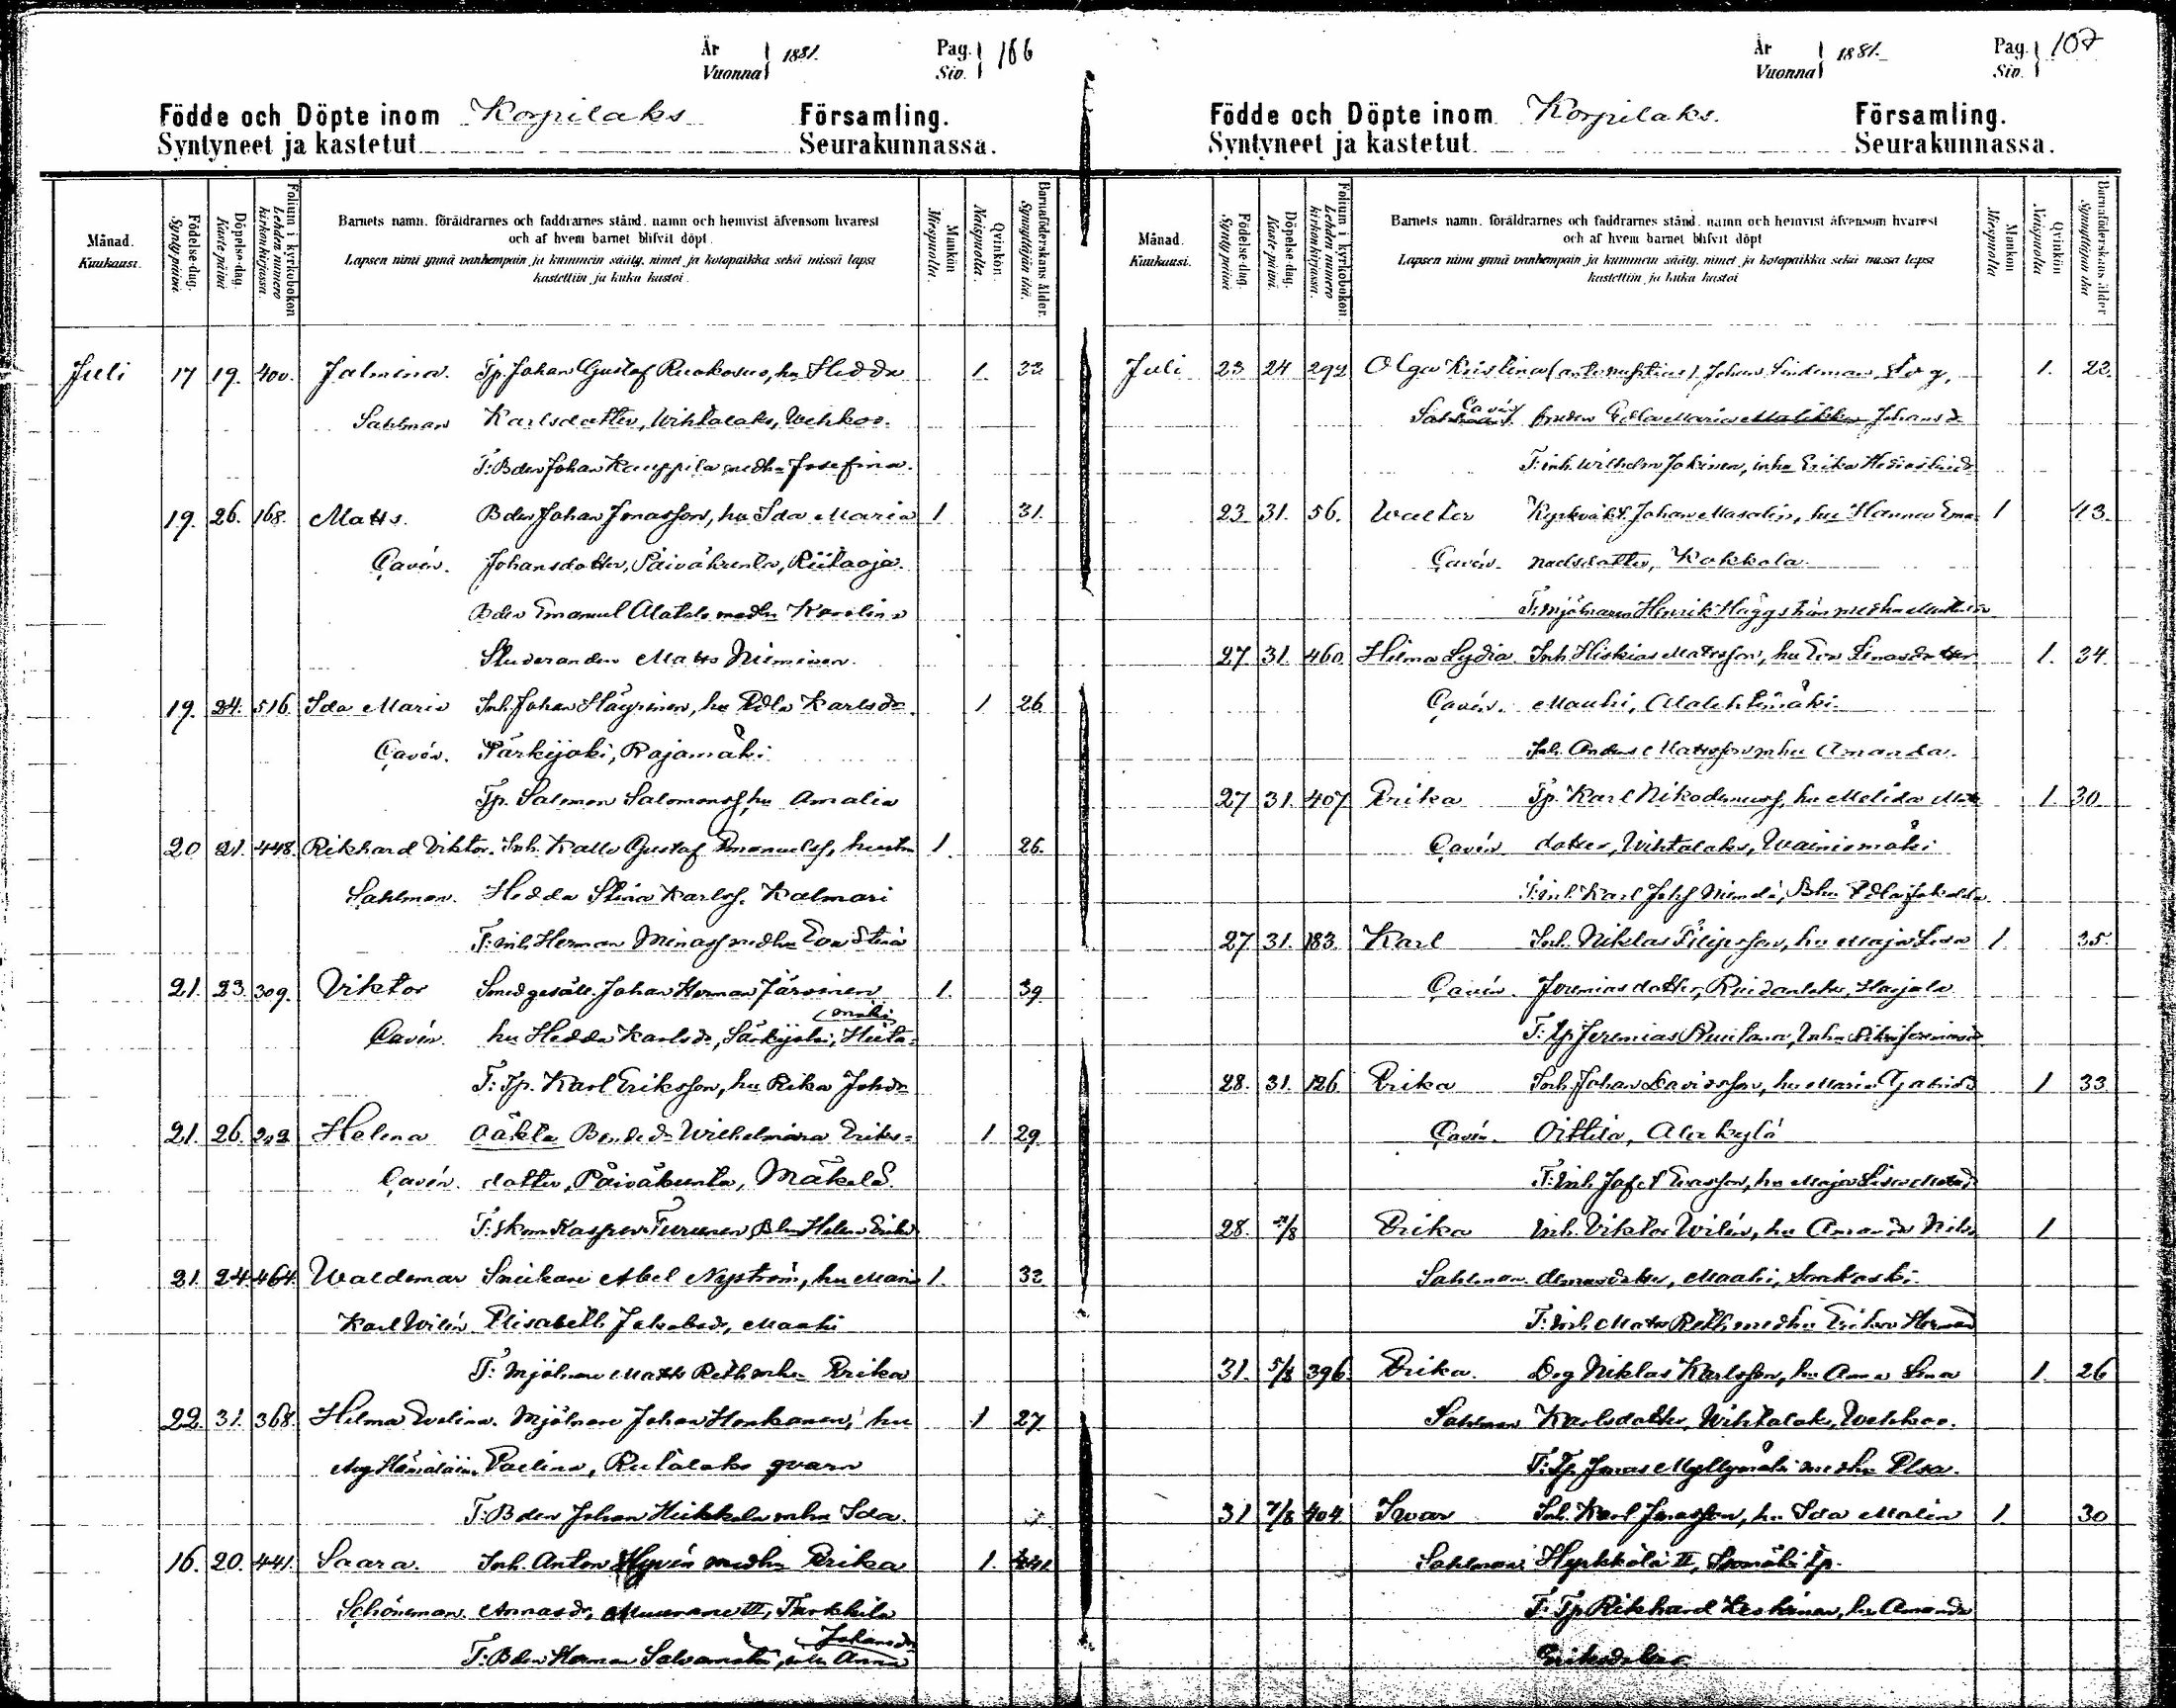 År 1881. Pag. 166
Vuonna Siv.
Födde och Döpte inom Korpilaks Församling.
Syntyneet ja kastetut Seurakunnassa.
Månad. Kuukausi.
Födelse-dag. Syntypäivä.
Döpelse-dag. Kastepäivä
Folium i kyrkobokon Lehden numero kirkonkirjassa.
Barnets namn. föräldrarnes och faddrarnes stånd. namn och hemvist äfvensom hvarest
och af hvem barnet blifvit döpt.
Lapsen nimi ynnä vanhempain ja kummein sääty, nimet ja kotopaikka sekä missä lapsi
kastettiin ja kuka kastoi.
Mankön Miespuolta.
Qvinkön. Naispuolta.
Barnaföderskans ålder. Synnyttäjän ikä.
Juli 17 19. 400. Jalmina. Tp. Johan Gustaf Ruokosuo, hu Hedda 1. 33
Sahlman Karlsdotter, Wihtalaks, Wehkoo.
T: Bden Johan Kauppila medhu Josefina.
19. 26. 168. Matts. Bden Johan Jonasson, hu Ida Maria 1 31.
Cavén. Johansdotter, Päiväkunta, Riitaoja.
Bden Emanuel Alatalo medhu Karolina
Studeranden Matts Nieminen.
19. 24. 516 Ida Maria Inh. Johan Häyrinen, hu Edla Karlsdr. 1 26
Cavén. Särkijoki, Rajamäki
Tp. Salomon Salomonsf hu Amalia
20 21. 448. Rikhard Viktor. Inh. Kalle Gustaf Emanuelsf, hustru 1. 26.
Sahlman. Hedda Stina Karlsf. Kalmari
T: Inh. Herman Minasf medhu Eva Stina
21. 23. 309. Viktor Smedgesäll Johan Herman Järvinen 1. 39
mäki
Cavén. hu Hedda Karlsdr, Särkijoki, Hiita-
T: Tp. Karl Eriksson, hu Rika Johdr
21. 26. Helena Oäkta Wilhelmina Eriks- 1 29.
Cavén. dotter, Päiväkunta, Mäkelä.
T: Skom Kasper Turunen, Helena
21. 24. 464. Waldemar Snickare Abel Nyström, hu Maria 1. 32
Karl Wilén Elisabeth Jakobsdr, Maahi
T: Mjölnare Matts Reth mhu Erika
22. 31. 368. Hilma Evelina. Mjölnare Johan Honkanen, hu 1 27.
Aug Hämäläin. Paulina, Rutalaks qvarn
T: Bden Johan Heikkila mhu Ida.
16. 20. 441. Saara. Inh. Anton Hyvén medhu Erika 1.
Schöneman. Annasdr, Muurame III, Turkkila
Johansdr
T: Bden Herman mhu Anna
År 1881. Pag. 107
Vuonna Siv.
Födde och Döpte inom Korpilaks. Församling.
Syntyneet ja kastetut Seurakunnassa.
Månad. Kuukausi.
Födelse-dag. Syntypäivä
Döpelse-dag. Kastepäivä
Folium i kyrkobokon. Lehden numero kirkonkirjassa.
Barnets namn. föräldrarnes och faddrarnes stånd. namn och hemvist äfvensom hvarest
och af hvem barnet blifvit döpt
Lapsen nimi ynnä vanhempain ja kummein sääty, nimet ja kotopaikka sekä missä lapsi
kastettiin ja kuka kastoi
Mankön Miespuolta
Qvinkön Naispuolta.
Barnaföderskans ålder Synnyttäjän ikä
Juli 23 24 292 Olga Kristina (antenuptias) Johan Lindeman, 1. 22.
Cavén Edla Maria Johansdr
T: inh. Wilhelm Jokinen, inha Erika
23 31. 56. Walter Kyrkväkt. Johan Masalin, hu Hanna Ema 1 43.
Cavén. nuelsdotter, Kokkola.
T: Mjölnaren Henrik Häggström medhu
27 31. 460. Hilma Lydia Inh. Hiskias Matsson, hu Eva Enasdotter 1. 34.
Cavén. Maahi, Alalehtimäki.
Inh. Anders Mattsson mhu Amanda.
27 31. 407 Erika Tp. Karl Nikodemusf, hu Melida Matts 1. 30
Cavén dotter, Wihtalaks, Wainiomäki
T: Inh. Karl Johsf
27 31. 183. Karl Inh. Niklas Filipsson, hu Maja Lisa 1. 35.
Cavén. Jeremiasdotter, Harjala
T: Tp Jeremias
28. 31. 126 Erika Inh. Johan Davidsson, hu Maria 1 33.
Cavén. Oittila, Alakylä
T: Inh. Jafet Evasson, hu Maja Lisa
28. /8 Erika Inh. Viktor Wilén, hu Amanda 1
Sahlman. Maahi,
T: Inh. Matts Reth medhu Erika
31. 5/8 396. Erika. Drg Niklas Karlsson, hu Anna Lena 1. 26
Sahlman Karlsdotter, Wihtalaks, Wehkoo.
T: Tp. Jonas Myllymäki medhu Elsa.
31 7/8 404 Iwar Inh. Karl Jonasson, hu Ida Maria 1. 30
Sahlman Hyrkkölä II, tp.
T: Tp Rikhard Leskinen, hu Amanda
Eriksdotter